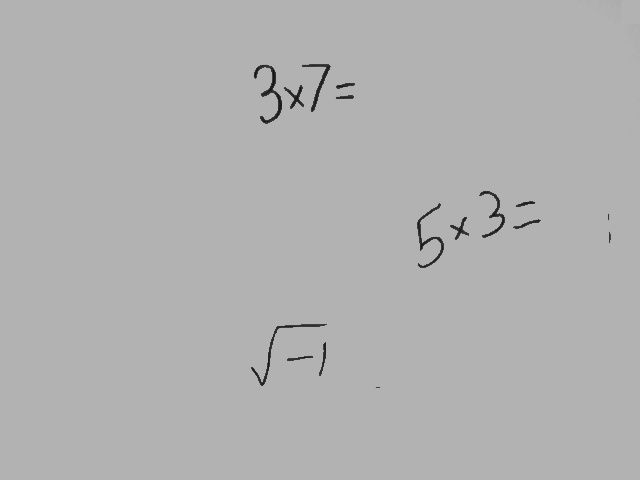 3×7=
5×3=
√-1